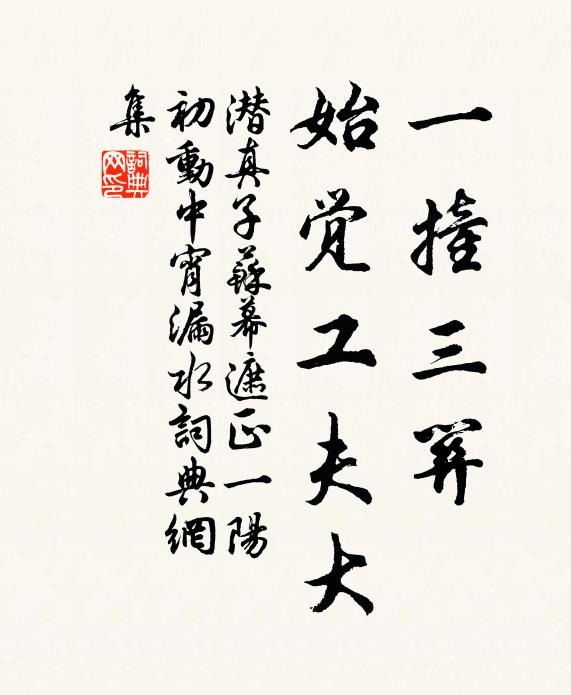 一撞三關
始觉工夫大
潜真子蘇幕遮正一陽
初動中宵漏水詞典網
集
詞典
网印